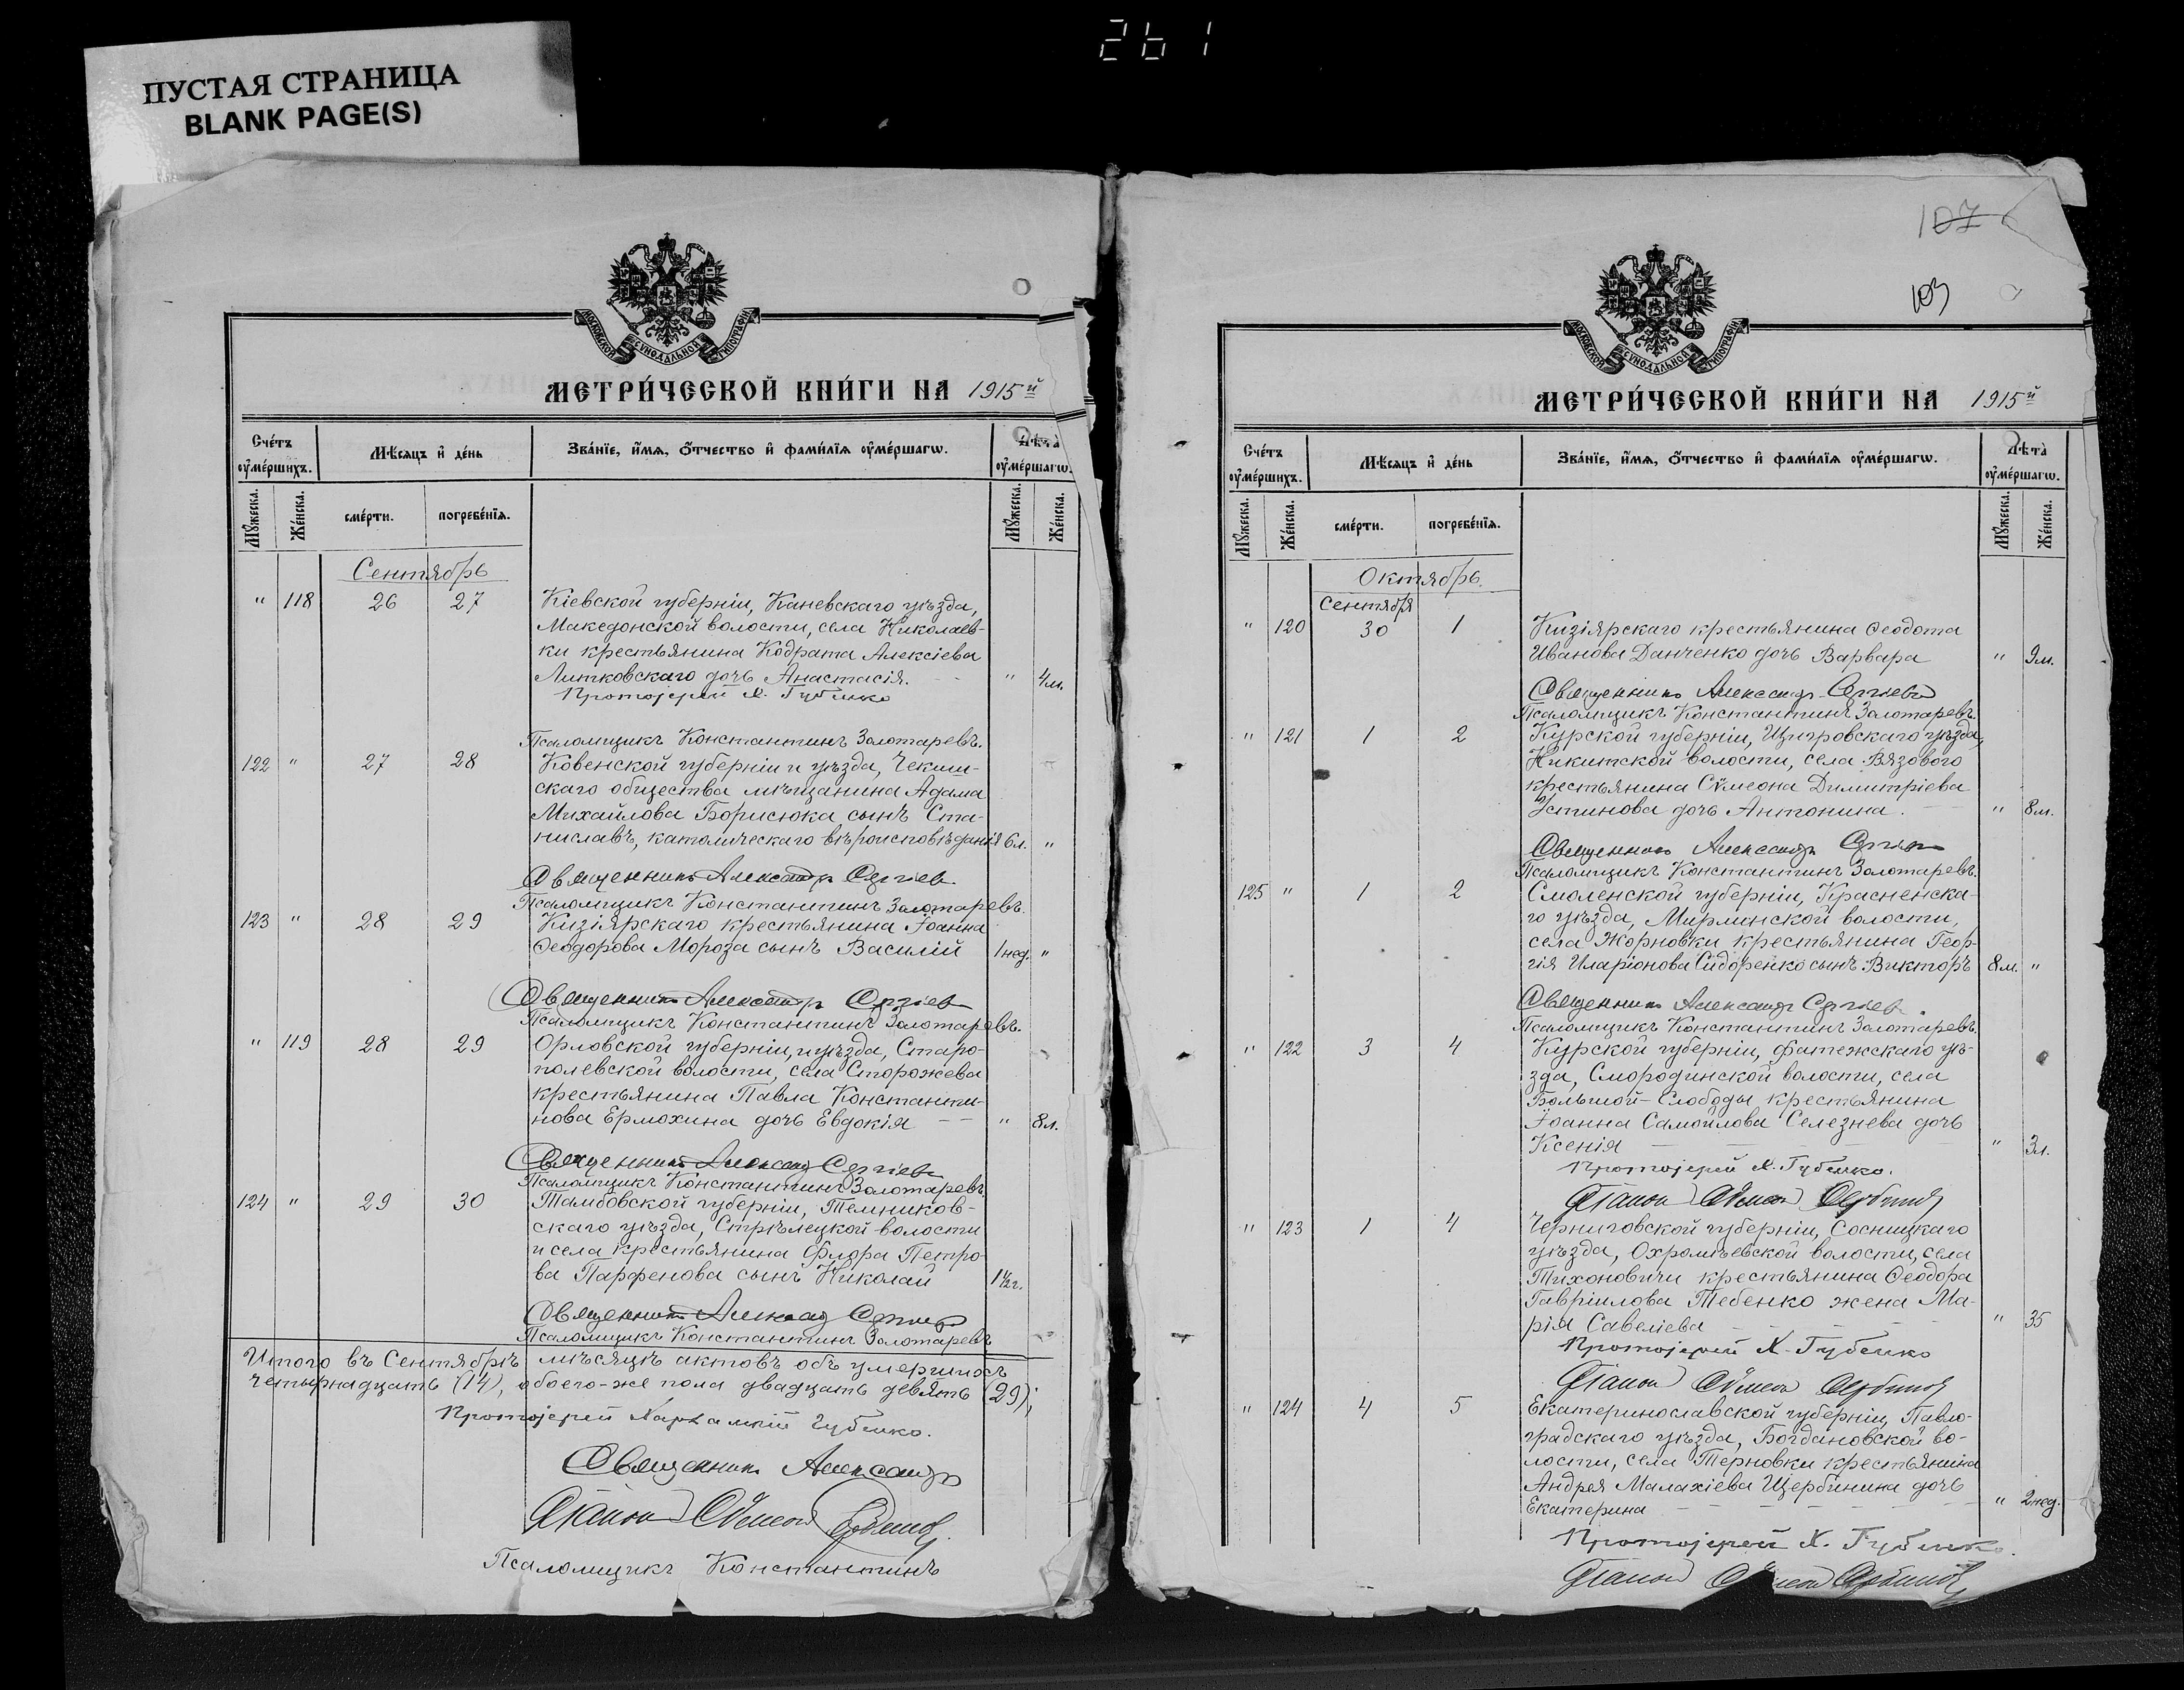 261
ПУСТАЯ СТРАНИЦА
BLANK PAGE(S)
МОСКОВСКОЙ СѴНОДАЛЬНОЙ ТИПОГРАФІИ
МЕТРИ́ЧЕСКОЙ КНИ́ГИ НА 1915й
Сче́тъ оу҆ме́ршихъ.
Мѣ́сяцъ и҆ де́нь
Зва́нїе, и҆́мя, ѻ҆́тчество и҆ фами́лїя оу҆ме́ршагѡ.
Лѣ́та̀ оу҆ме́ршагѡ.
Мꙋ́жеска.
Же́нска.
сме́рти.
погребе́нїя.
Мꙋ́жеска.
Же́нска.
Сентябрь
" 118 26 27 Кіевской губерніи, Каневскаго уѣзда,
Македонской волости, села Николаев-
ки крестьянина Кодрата Алексіева
Литковскаго дочь Анастасія. " 4 м.
Протоіерей Х. Губенко
Псаломщикъ Константинъ Золотаревъ.
122 " 27 28 Ковенской губерніи и уѣзда, Чекиш-
скаго общества мѣщанина Адама
Михайлова Борисюка сынъ Ста-
ниславъ, католическаго вѣроисповѣданія 6 л. "
Священникъ Александръ Сергіевъ
Псаломщикъ Константинъ Золотаревъ.
123 " 28 29 Кизіярскаго крестьянина Іоанна
Ѳеодорова Мороза сынъ Василій 1 нед. "
Священникъ Александръ Сергіевъ
Псаломщикъ Константинъ Золотаревъ.
" 119 28 29 Орловской губерніи, и уѣзда, Старо-
полевской волости, села Сторожева
крестьянина Павла Константи-
нова Ермохина дочь Евдокія " 8 л.
Священникъ Александръ Сергіевъ
Псаломщикъ Константинъ Золотаревъ.
124 " 29 30 Тамбовской губерніи, Темников-
скаго уѣзда, Стрѣлецкой волости
и села крестьянина Флора Петро-
ва Парфенова сынъ Николай 1½ г.
Священникъ Александръ Сергіевъ
Псаломщикъ Константинъ Золотаревъ
Итого въ Сентябрѣ мѣсяцѣ актовъ объ умершихъ
четырнадцать (14), обоего-же пола двадцать девять (29);
Протоіерей Харлампій Губенко.
Священникъ Александръ
Діаконъ Симеонъ
Псаломщикъ Константинъ
107
103
МОСКОВСКОЙ СѴНОДАЛЬНОЙ ТИПОГРАФІИ
МЕТРИ́ЧЕСКОЙ КНИ́ГИ НА 1915й
Сче́тъ оу҆ме́ршихъ.
Мѣ́сяцъ и҆ де́нь
Зва́нїе, и҆́мя, ѻ҆́тчество и҆ фами́лїя оу҆ме́ршагѡ.
Лѣ́та̀ оу҆ме́ршагѡ.
Мꙋ́жеска.
Же́нска.
сме́рти.
погребе́нїя.
Мꙋ́жеска.
Же́нска.
Октябрь.
Сентября
" 120 30 1 Кизіярскаго крестьянина Ѳеодота
Иванова Данченко дочь Варвара " 9 м.
Священникъ Александръ Сергіевъ
Псаломщикъ Константинъ Золотаревъ.
" 121 1 2 Курской губерніи, Щигровскаго уѣзда,
Никитской волости, села Вязового
крестьянина Сѵмеона Димитріева
Устинова дочь Антонина. " 8 м.
Священникъ Александръ Сергіевъ
Псаломщикъ Константинъ Золотаревъ.
125 " 1 2 Смоленской губерніи, Красненска-
го уѣзда, Мирминской волости,
села Жорновки крестьянина Геор-
гія Иларіонова Сидоренко сынъ Викторъ 8 м. "
Священникъ Александръ Сергіевъ.
Псаломщикъ Константинъ Золотаревъ.
" 122 3 4 Курской губерніи, Фатежскаго уѣ-
зда, Смородинской волости, села
Большой-Слободы крестьянина
Іоанна Самойлова Селезнева дочь
Ксенія " 3 л.
Протоіерей Х. Губенко.
Діаконъ Симеонъ
" 123 1 4 Черниговской губерніи, Сосницкаго
уѣзда, Охрамѣевской волости, села
Тихоновичи крестьянина Ѳеодора
Гавріилова Тебенко жена Ма-
рія Савеліева " 35
Протоіерей Х. Губенко
Діаконъ Симеонъ
" 124 4 5 Екатеринославской губерніи, Павло-
градскаго уѣзда, Богдановской во-
лости, села Терновки крестьянина
Андрея Малахіева Щербинина дочь
Екатерина " 2 нед.
Протоіерей Х. Губенко.
Діаконъ Симеонъ